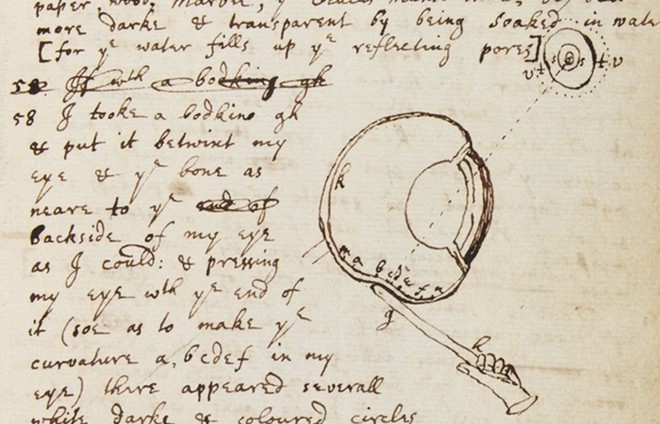 paper, wood, marble, ye
more darke & transparent by being soaked in wate
[for ye water fills up ye reflecting pores]
58 If wth a bodkine gh
58 I tooke a bodkine gh
& put it betwixt my
eye & ye bone as
neare to ye end of
backside of my eye
as I could: & pressing
my eye wth ye end of
it (soe as to make ye
curvature a, bcdef in my
eye) there appeared severall
white darke & coloured circles
s s
t t
v v
k
m a b c d e f n
g
h